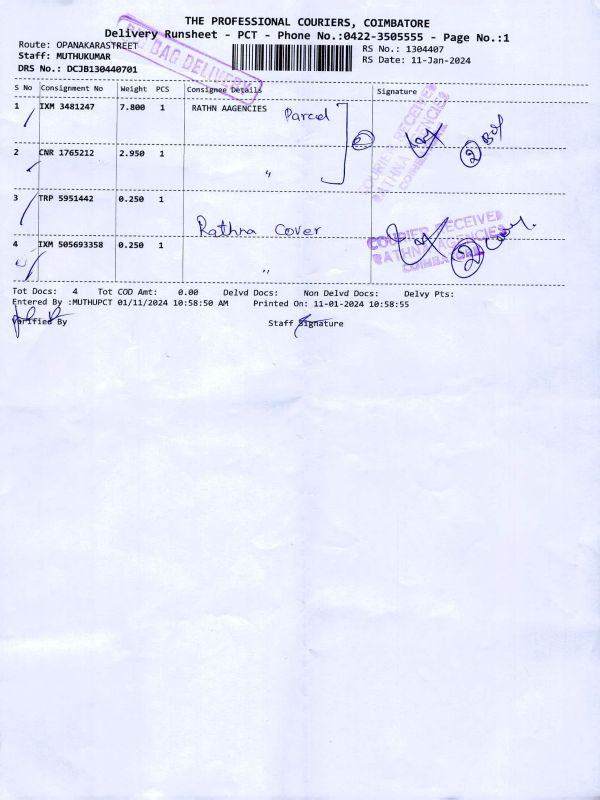 THE PROFESSIONAL COURIERS, COIMBATORE
Delivery Runsheet - PCT - Phone No.:0422-3505555 - Page No.:1
Route: OPANAKARASTREET
RS No.: 1304407
Staff: MUTHUKUMAR
RS Date: 11-Jan-2024
DRS No.: DCJB130440701
BAG DELIVERY
S No Consignment No Weight PCS Consignee Details Signature
1 IXM 3481247 7.800 1 RATHN AAGENCIES Parcel
COURIER RECEIVED
RATHNA AGENCIES
COIMBATORE
2 CNR 1765212 2.950 1 "
2
3 TRP 5951442 0.250 1
Rathna Cover
COURIER RECEIVED
RATHNA AGENCIES
COIMBATORE
4 IXM 505693358 0.250 1 "
2 Cover.
Tot Docs: 4 Tot COD Amt: 0.00 Delvd Docs: Non Delvd Docs: Delvy Pts:
Entered By :MUTHUPCT 01/11/2024 10:58:50 AM Printed On: 11-01-2024 10:58:55
Varified By Staff Signature